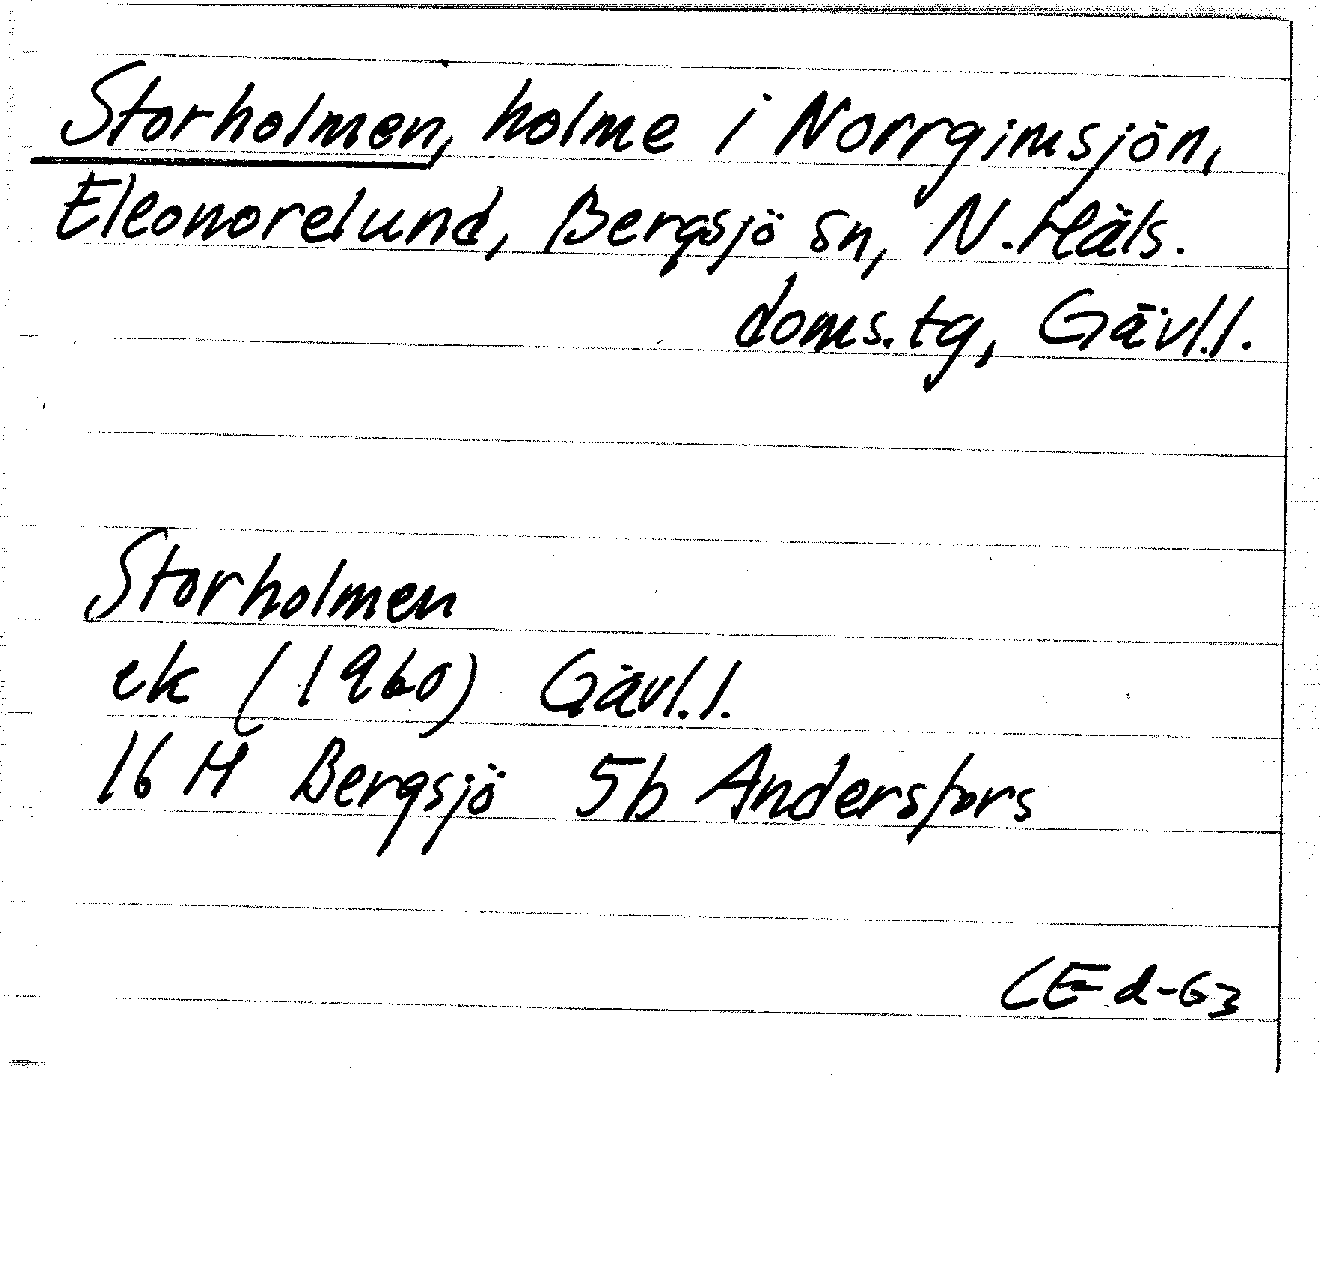 Storholmen, holme i Norrgimsjön,
Eleonorelund, Bergsjö sn, N.Häls.
doms.tg, Gävl.l.
Storholmen
ek (1960) Gävl.l.
16 H Bergsjö 5b Andersfors
CE d-63